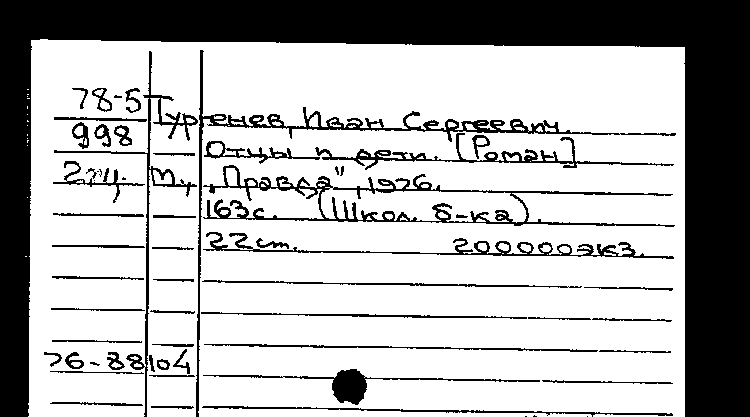 78-5 Тургенев, Иван Сергеевич.
998 Отцы и дети. [Роман]
М., „Правда", 1976.
163с. (Школ. б-ка).
22см. 200000экз.
76-88104